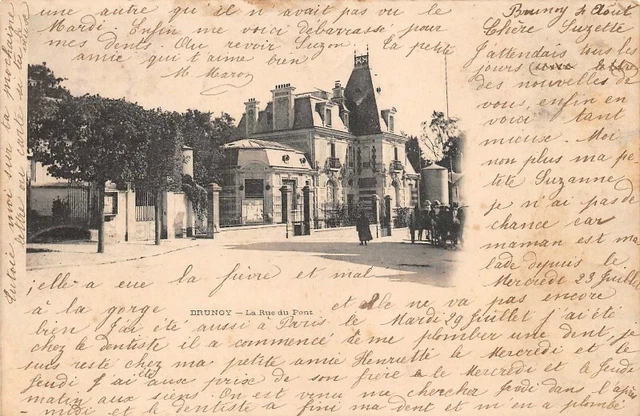 Brunoy 4 Août
Chère Suzette
J'attendais tous les
jours
des nouvelles de
vous, enfin en
voici tant
mieux. Moi
non plus ma pe
tite Suzanne
je n'ai pas de
chance car
maman est ma
lade depuis le
Mercredi 23 Juillet
; elle a eue la fièvre et mal
à la gorge et elle ne va pas encore
BRUNOY — La Rue du Pont
bien J'ai été aussi à Paris le Mardi 29 Juillet j'ai été
chez le dentiste il a commencé de me plomber une dent, je
suis resté chez ma petite amie Henriette le Mercredi et le
Jeudi J'ai été aux prix de son frère le Mercredi et le Jeudi
matin aux siens. On est venu me chercher Jeudi dans l'aprè
-midi et le dentiste a fini ma dent et m'en a plombé
une autre qu'il n'avait pas vu le
Mardi Enfin me voici débarrassé pour
mes dents. Au revoir Suzon. La petite
amie qui t'aime bien
M. Maron
Tutoie moi sur la prochaine
lettre ou carte